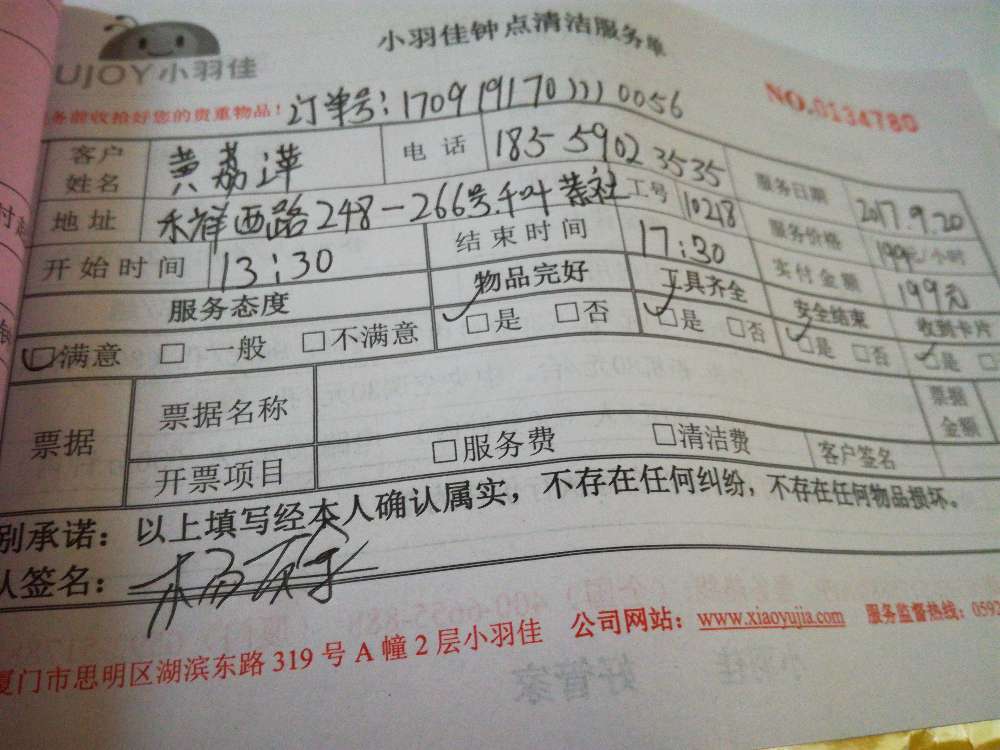 小羽佳钟点清洁服务单
UJOY小羽佳
务前收拾好您的贵重物品! 订单号:170919170 0056 NO.0134780
客户姓名 黄荔萍 电话 185 5902 3535 服务日期 2017.9.20
地址 禾祥西路248-266号 工号 10218 服务价格 元/小时
开始时间 13:30 结束时间 17:30 实付金额 199元
服务态度 物品完好 工具齐全 安全结束 收到卡片
☑满意 □一般 □不满意 ☑是 □否 ☑是 □否 ☑是 □否 ☑是 □
票据 票据名称 票据金额
开票项目 □服务费 □清洁费 客户签名
别承诺:以上填写经本人确认属实,不存在任何纠纷,不存在任何物品损坏。
人签名:
厦门市思明区湖滨东路319号A幢2层小羽佳 公司网站:www.xiaoyujia.com 服务监督热线:0592